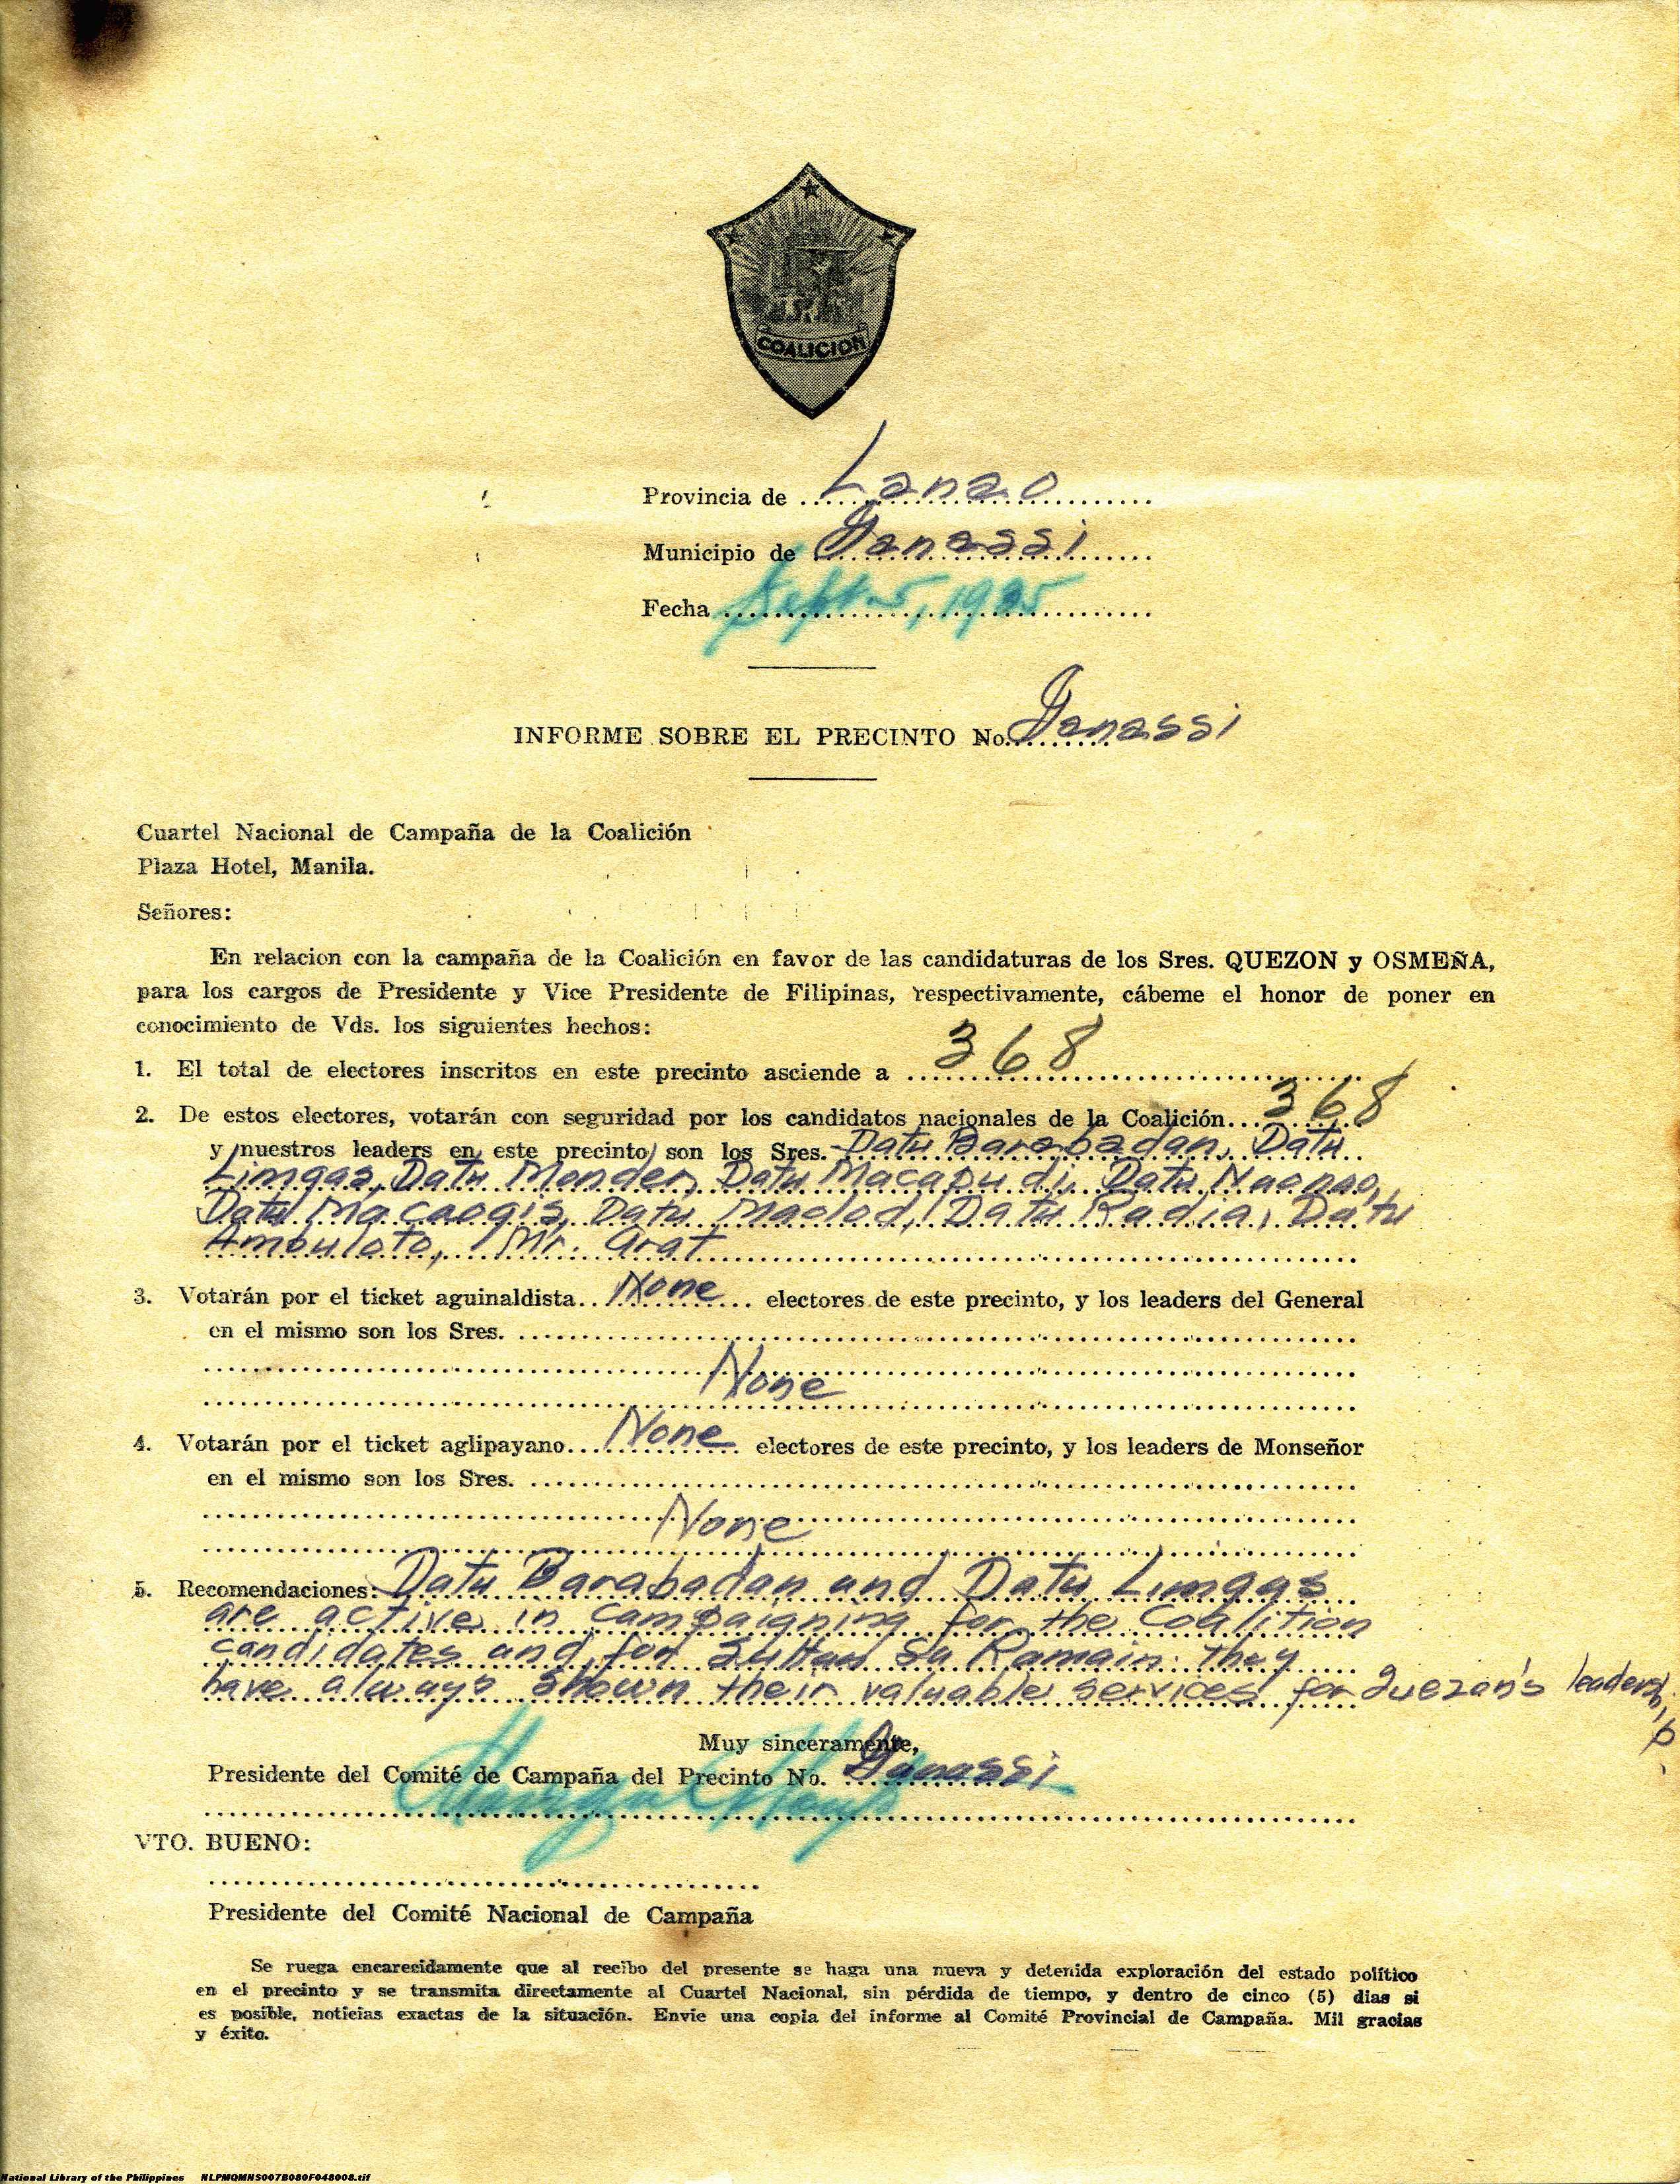 COALICION
Provincia de Lanao
Municipio de Ganassi
Fecha Sept. 5, 1935
INFORME SOBRE EL PRECINTO No. Ganassi
Cuartel Nacional de Campaña de la Coalición
Plaza Hotel, Manila.
Señores:
En relacion con la campaña de la Coalición en favor de las candidaturas de los Sres. QUEZON y OSMEÑA,
para los cargos de Presidente y Vice Presidente de Filipinas, respectivamente, cábeme el honor de poner en
conocimiento de Vds. los siguientes hechos:
1. El total de electores inscritos en este precinto asciende a 368
2. De estos electores, votarán con seguridad por los candidatos nacionales de la Coalición... 368
y nuestros leaders en este precinto son los Sres. Datu Barabadan, Datu
Limgas, Datu Mender, Datu Macapudi, Datu Naonao,
Datu Macaogis, Datu Maclod, Datu Radia, Datu
Ambuloto, Mr. Arat
3. Votarán por el ticket aguinaldista.. None ... electores de este precinto, y los leaders del General
en el mismo son los Sres.
None
4. Votarán por el ticket aglipayano... None electores de este precinto, y los leaders de Monseñor
en el mismo son los Sres.
None
5. Recomendaciones: Datu Barabadan and Datu Limgas
are active in campaigning for the Coalition
candidates and for Sultan Sa Ramain. They
have always shown their valuable services for Quezon's leaders
Muy sinceramente,
Presidente del Comité de Campaña del Precinto No. Ganassi
VTO. BUENO:
Presidente del Comité Nacional de Campaña
Se ruega encarecidamente que al recibo del presente se haga una nueva y detenida exploración del estado político
en el precinto y se transmita directamente al Cuartel Nacional, sin pérdida de tiempo, y dentro de cinco (5) dias si
es posible, noticias exactas de la situación. Envie una copia del informe al Comité Provincial de Campaña. Mil gracias
y éxito.
National Library of the Philippines NLPMQMNS007B080F048008.tif